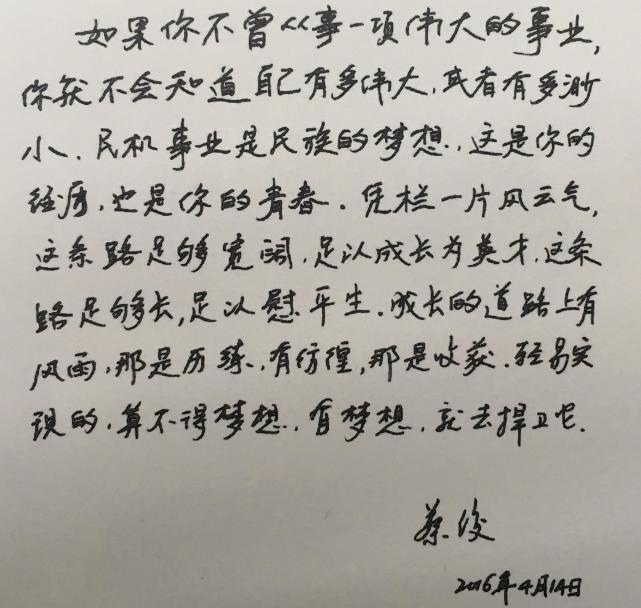 如果你不曾从事一项伟大的事业,
你就不会知道自己有多伟大,或者有多渺
小.民机事业是民族的梦想,这是你的
经历,也是你的青春.凭栏一片风云气,
这条路足够宽阔,足以成长为英才,这条
路足够长,足以慰平生.成长的道路上有
风雨,那是历练,有彷徨,那是收获.轻易实
现的,算不得梦想,有梦想,就去捍卫它.
蔡俊
2016年4月14日